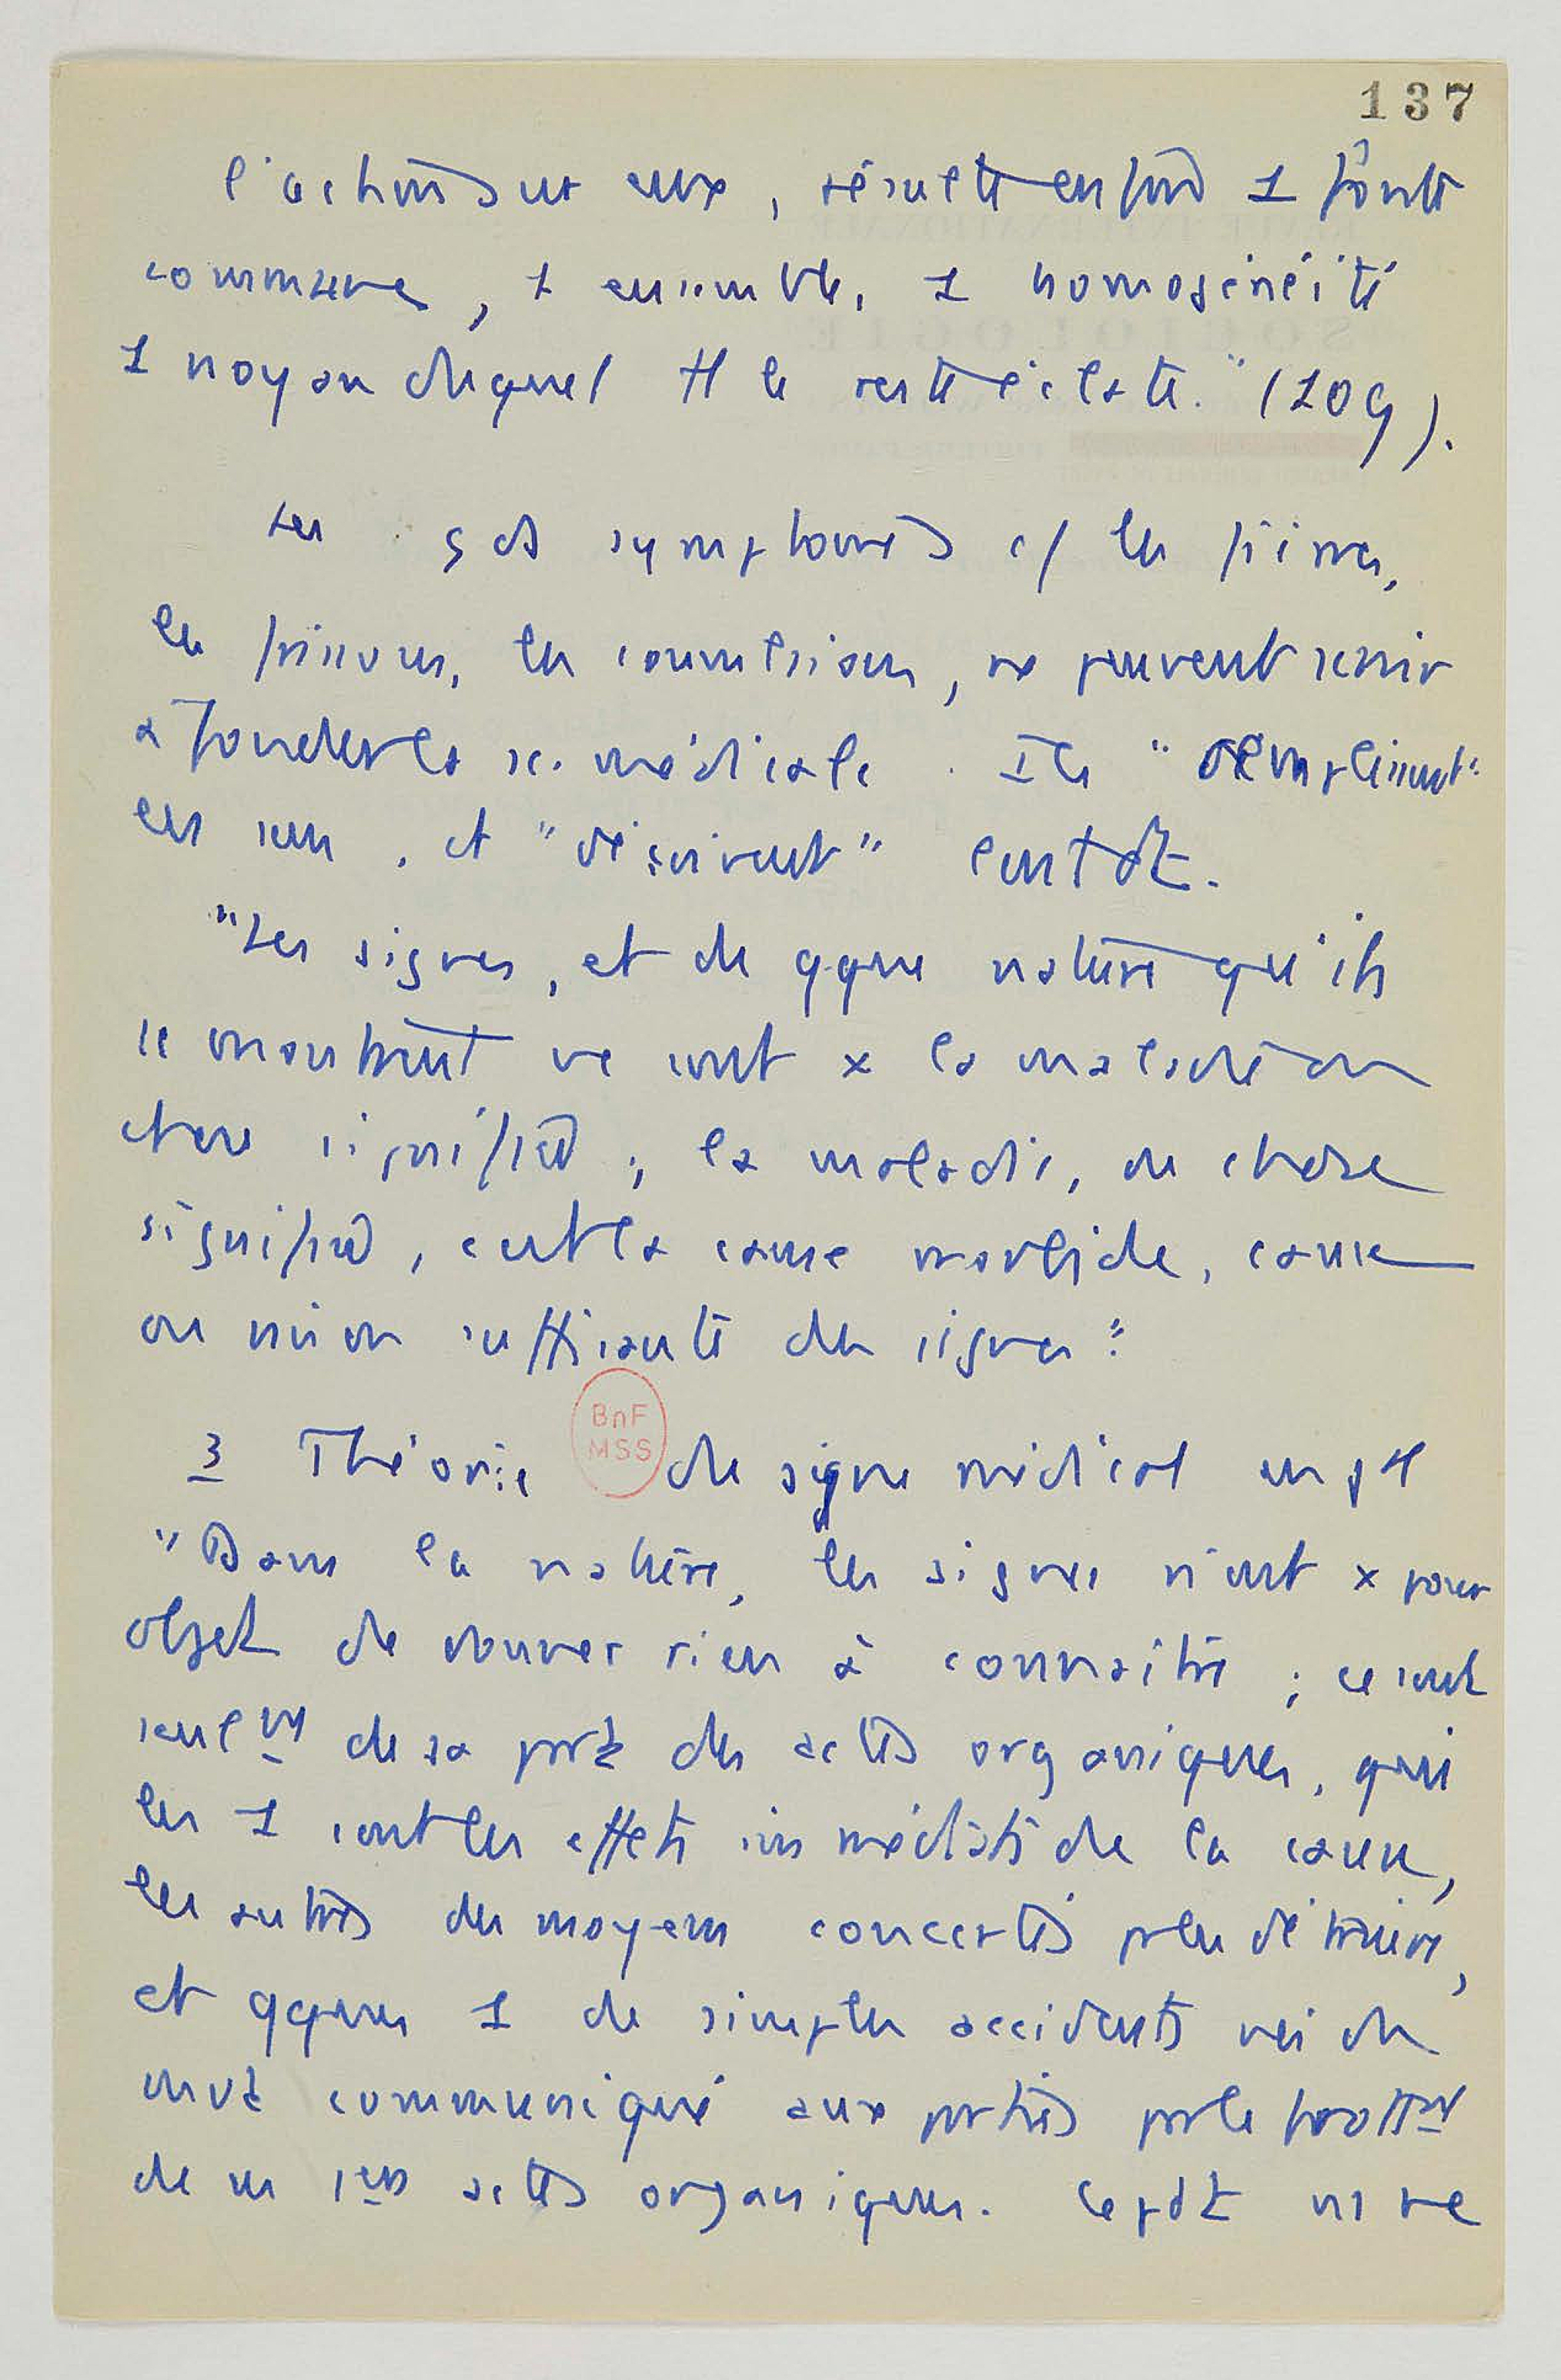 137
l'action sur eux, résulte enfin 1 foule
commune, 1 ensemble, 1 homogénéité
1 noyau duquel tt le reste éclate." (109).
Les gds symptomes c/ les fièvres,
les frissons, les convulsions, ne peuvent servir
à fonder la sc. médicale. Ils "remplissent"
les sens, et "décrivent"
"Les signes, et de qque nature qu'ils
se montrent ne sont x la maladie ou
chose signifiée; la maladie, ou chose
signifiée, c'est la cause morbide, cause
ou raison suffisante des signes"
3 Théorie du signe médical en gal
"Dans la nature, les signes n'ont x pour
objet de donner rien à connaitre; ce sont
seulmt de sa part des actes organiques, qui
les 1 sont les effets immédiats de la cause,
les autres des moyens concertés pr les détruire,
et qques 1 de simples accidents nés du
mvt communiqué aux parties par le
de ces 1ers actes organiques. Cepdt ns ne
BnF
MSS